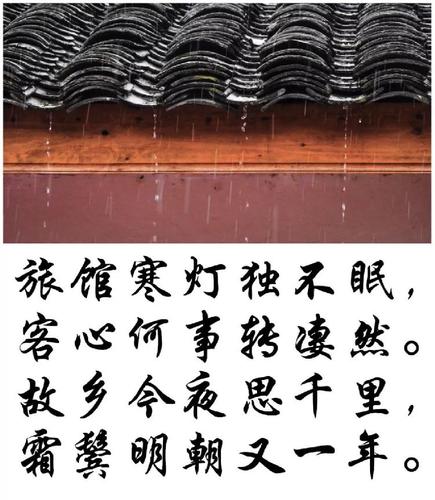 旅馆寒灯独不眠，
客心何事转凄然。
故乡今夜思千里，
霜鬓明朝又一年。